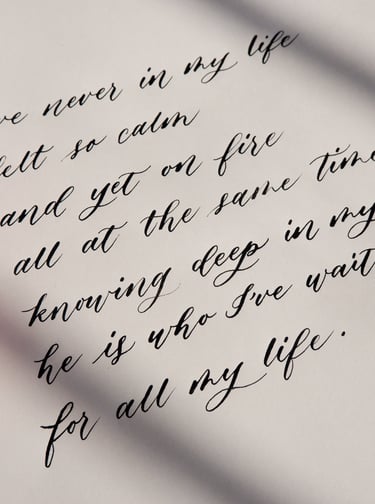 ve never in my life
felt so calm
and yet on fire
all at the same time
knowing deep in my
he is who I've wait
for all my life.